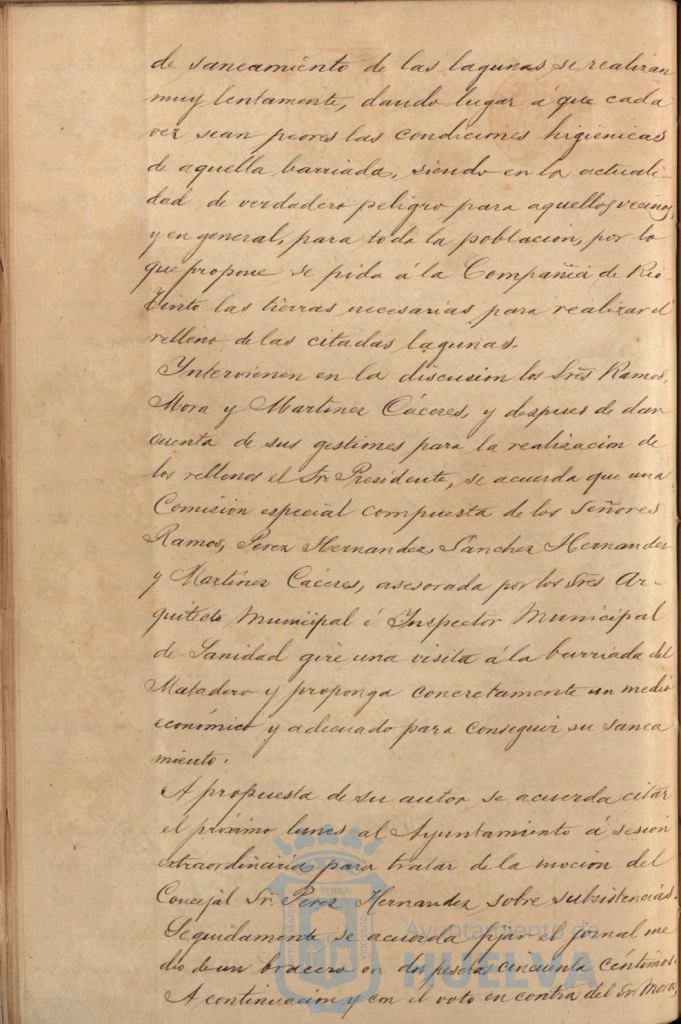 de saneamiento de las lagunas, se realizan
muy lentamente, dando lugar á que cada
vez sean peores las condiciones higiénicas
de aquella barriada, siendo en la actuali-
dad de verdadero peligro para aquellos vecinos,
y en general, para toda la población, por lo
que propone se pida á la Compañía de Rio-
Tinto las tierras necesarias para realizar el
relleno de las citadas lagunas.
Intervienen en la discusión los Sres Ramos,
Mora y Martinez Cáceres, y despues de dar
cuenta de sus gestiones para la realización de
los rellenos el Sr. Presidente, se acuerda que una
Comisión especial compuesta de los Señores
Ramos, Perez Hernandez, Sánchez Hernandez
y Martínez Cáceres, asesorada por los Sres Ar-
quitecto Municipal é Inspector Municipal
de Sanidad gire una visita á la barriada del
Matadero y proponga concretamente un medio
económico y adecuado para conseguir su sanea
miento.
A propuesta de su autor se acuerda citar
el próximo lunes al Ayuntamiento á sesión
extraordinaria, para tratar de la moción del
Concejal Sr. Perez Hernandez, sobre subsistencias.
Seguidamente se acuerda fijar el jornal me
dio de un bracero en dos pesetas cincuenta céntimos.
A continuación y con el voto en contra del Sr. Mora,
Ayuntamiento de
HUELVA